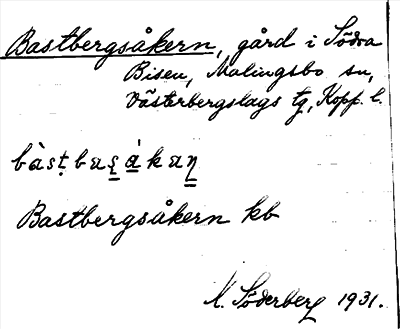 Bastbergsåkern, gård i Södra
Bisen, Malingsbo sn,
Västerbergslags tg, Kopp. l.
Bastbergsåkern kb
N. Söderberg 1931.